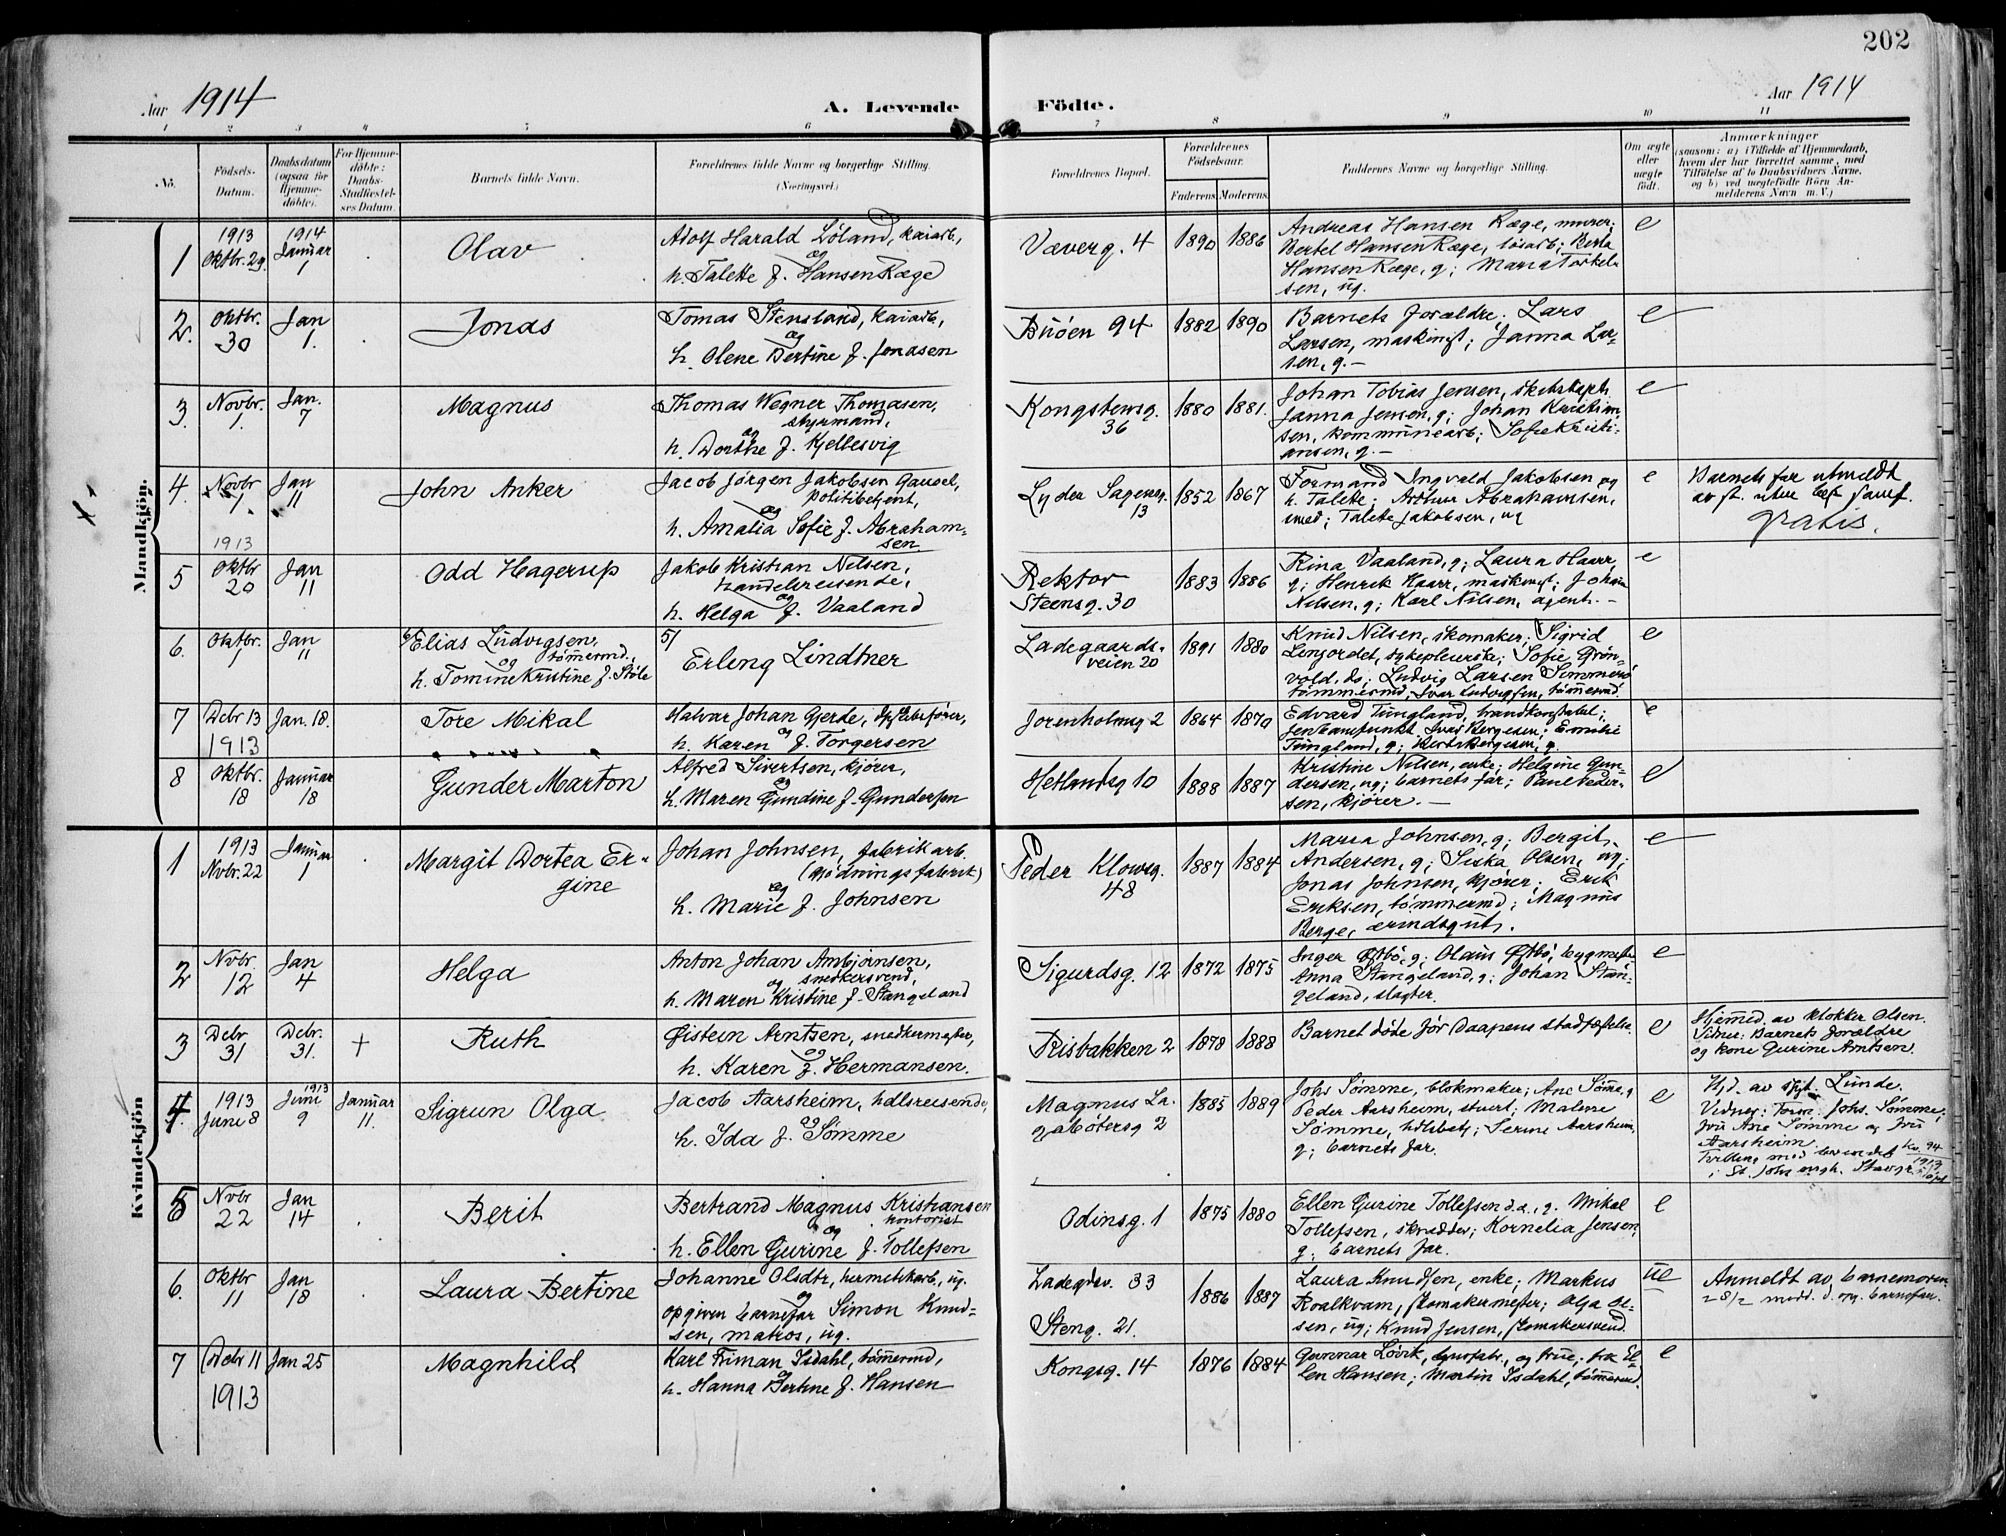 202
Aar 1914
A. Levende Födte.
Aar 1914
1 2 3 4 5 6 7 8 9 10 11
No.
Födsels-
Datum.
Daabsdatum
(ogsaa for
Hjemme-
döbte).
For Hjemme-
döbte:
Daabs-
Stadfæstel-
ses Datum.
Barnets fulde Navn.
Forældrenes fulde Navne og borgerlige Stilling.
(Næringsvei.)
Forældrenes Bopæl.
Forældrenes
Födselsaar.
Faderens. Moderens.
Faddernes Navne og borgerlige Stilling.
Om ægte
eller
uægte
födt.
Anmærkninger
(saasom: a) i Tilfælde af Hjemmedaab,
hvem der har forrettet samme, med
Tilföielse af to Daabsvidners Navne,
og b) ved uægtefödte Börn An-
melderens Navn m. V.)
Mandkjön.
1
1913
Oktbr. 29
1914
Januar
1
Olav
Adolf Harald Löland, kaiarb.,
og
h. Talette f. Hansen Ræge
Væverg. 4
1890
1886
Andreas Hansen Ræge, murer;
Bertel Hansen Ræge, løsarb; Berta
Hansen Ræge, g; Maria Torkel-
sen, ug.
e
2.
Oktbr.
30
Jan
1.
Jonas
Tomas Stensland, kaiarb,
og
h. Olene Bertine f. Jonasen
Buöen 94
1882
1890
Barnets forældre; Lars
Larsen, maskinist; Janna Lar-
sen, g. —
e
3.
Novbr.
1.
Jan.
7
Magnus
Thomas Wegner Thomasen,
styrmand,
og
h. Dorthe f. Kjellesvig
Kongstensg.
36
1880
1881.
Johan Tobias Jensen,
Janna Jensen, g; Johan Kristian-
sen, kommunearb; Sofie Kristi-
ansen, g. —
e
4.
Novbr
1.
Jan
11
John Anker
Jacob Jørgen Jakobsen Gausel,
politibetjent,
og
h. Amalia Sofie f. Abraham-
sen
Lyder Sagensg.
13
1852
1867
Formand Ingvald Jakobsen og
h. Talette; Arthur Abrahamsen,
smed; Talette Jakobsen, ug
e
Barnets far utmeldt
av st.
gratis.
5
1913
Oktbr
20
Jan
11
Odd Hagerup
Jakob Kristian Nilsen,
handelsreisende,
og
h. Helga f. Vaaland
Rektor
Steensg. 30
1883
1886
Rina Vaaland, g; Laura Haarr,
g; Henrik Haarr, maskinist; Johan
Nilsen, g; Karl Nilsen, agent. —
e
6.
Oktbr.
1
Jan
11
6/ Elias Ludvigsen,
tømmermd.,
og
h. Tomine Kristine f. Støle
5/
Erling Lindtner
Ladegaards-
veien 20
1891
1880
Knud Nilsen, skomaker; Sigrid
Lenjordet, sykepleierske; Sofie Grøn-
vold, do; Ludvig Larsen
tømmermd, Ivar Ludvigsen, tømmermd.
e
7
Debr 13
1913
Jan. 18.
Tore Mikal
Halvar Johan Gjerde,
og
h. Karen f. Torgersen
Jorenholmsg 2
1864
1870
Edvard Tungland, brandkonstabel;
Ivar Bergesen; Emilie
Tungland, g; Berta Bergesen, g.
e
8
Oktbr.
18
Januar
18
Gunder Marton
Alfred Sivertsen, kjører,
og
h. Maren Gundine f. Gundersen
Hetlandsg 10
1888
1887
Kristine Nilsen, enke; Helgine Gun-
dersen, ug; barnets far; Paul Peder-
sen, kjører. —
e
Kvindekjön
1
1913
Novbr. 22
Januar
1
Margit Dortea Er-
gine
Johan Johnsen, fabrikarb.
(gjødningsfabrik)
og
h. Marie f. Johnsen
Peder Klowsg.
48
1887
1884
Maria Johnsen, g; Bergit
Andersen, g; Siska Olsen, ug;
Jonas Johnsen, kjører; Erik
Eriksen, tømmermd; Magnus
Berge, ærindsgut.
e
2
Novbr.
12
Jan
4
Helga
Anton Johan Ambjørnsen,
snedkersvend,
og
h. Maren Kristine f. Stangeland
Sigurdsg. 12
1872
1875
Inger Østbö, g; Olaus Østbö, bygmester
Anna Stangeland, g; Johan Stan-
geland, slagter.
e
3
Debr
31
Debr.
31.
+
Ruth
Øistein Arntsen, snedkermester,
og
h. Karen f. Hermansen.
Risbakken 2
1878
1888
Barnet døde før Daapens stadfæstelse.
e
Hjemmed. av klokker Olsen.
Vidner: Barnets forældre
og kone Gurine Arntsen.
4.
1913
Juni 8
1913
Juni
9
Januar
11.
Sigrun Olga
Jacob Aarsheim, hdlsreisende,
og
h. Ida f. Sømme
Magnus La-
gabøtersg 2
1885
1889
Johs Sømme, blokmaker; Ane Sømme, g
Peder Aarsheim, stuert; Malene
Sømme, hdlsbetj; Serine Aarsheim,
g; barnets far.
e
Hjd. av spt. Lunde.
Vidner: Form. Johs. Sømme,
fru Ane Sømme og fru
Aarsheim.
Tvilling med
i St. Johs mgh. Stavgr.
Kv. 94
1913
5
Novbr
22
Jan
14
Berit
Bertrand Magnus Kristiansen
kontorist
og
h. Ellen Gurine f. Tollefsen
Odinsg. 1
1875
1880
Ellen Gurine Tollefsen d.æ., g. Mikal
Tollefsen, skrædder; Kornelia Jensen,
g; barnets far.
e
6.
Oktbr
11
Jan
18
Laura Bertine
Johanne Olsdtr, hermetikarb, ug.
og
opgiven barnefar Simon Knud-
sen, matros, ug.
Ladegdsv. 33
Steng. 21.
1886
1887
Laura Knudsen, enke; Markus
Roalkvam, skomakermester; Olga Ol-
sen, ug; Knud Jensen, skomakersvend.
ue
Anmeldt av barnemoren
28/2 medd. d. opg. barnefar.
7
Debr 11
1913
Jan 25
Magnhild
Karl Friman Isdahl, tømmermd,
og
h. Hanna Bertine f. Hansen
Kongsg. 14
1876
1884
Gunnar Løvik, og frue; frk El-
len Hansen; Martin Isdahl, tømmermd.
e